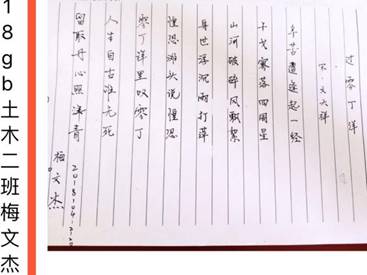 18gb土木二班梅文杰
过零丁洋
宋.文天祥
辛苦遭逢起一经
干戈寥落四周星
山河破碎风飘絮
身世浮沉雨打萍
惶恐滩头说惶恐
零丁洋里叹零丁
人生自古谁无死
留取丹心照汗青
梅文杰